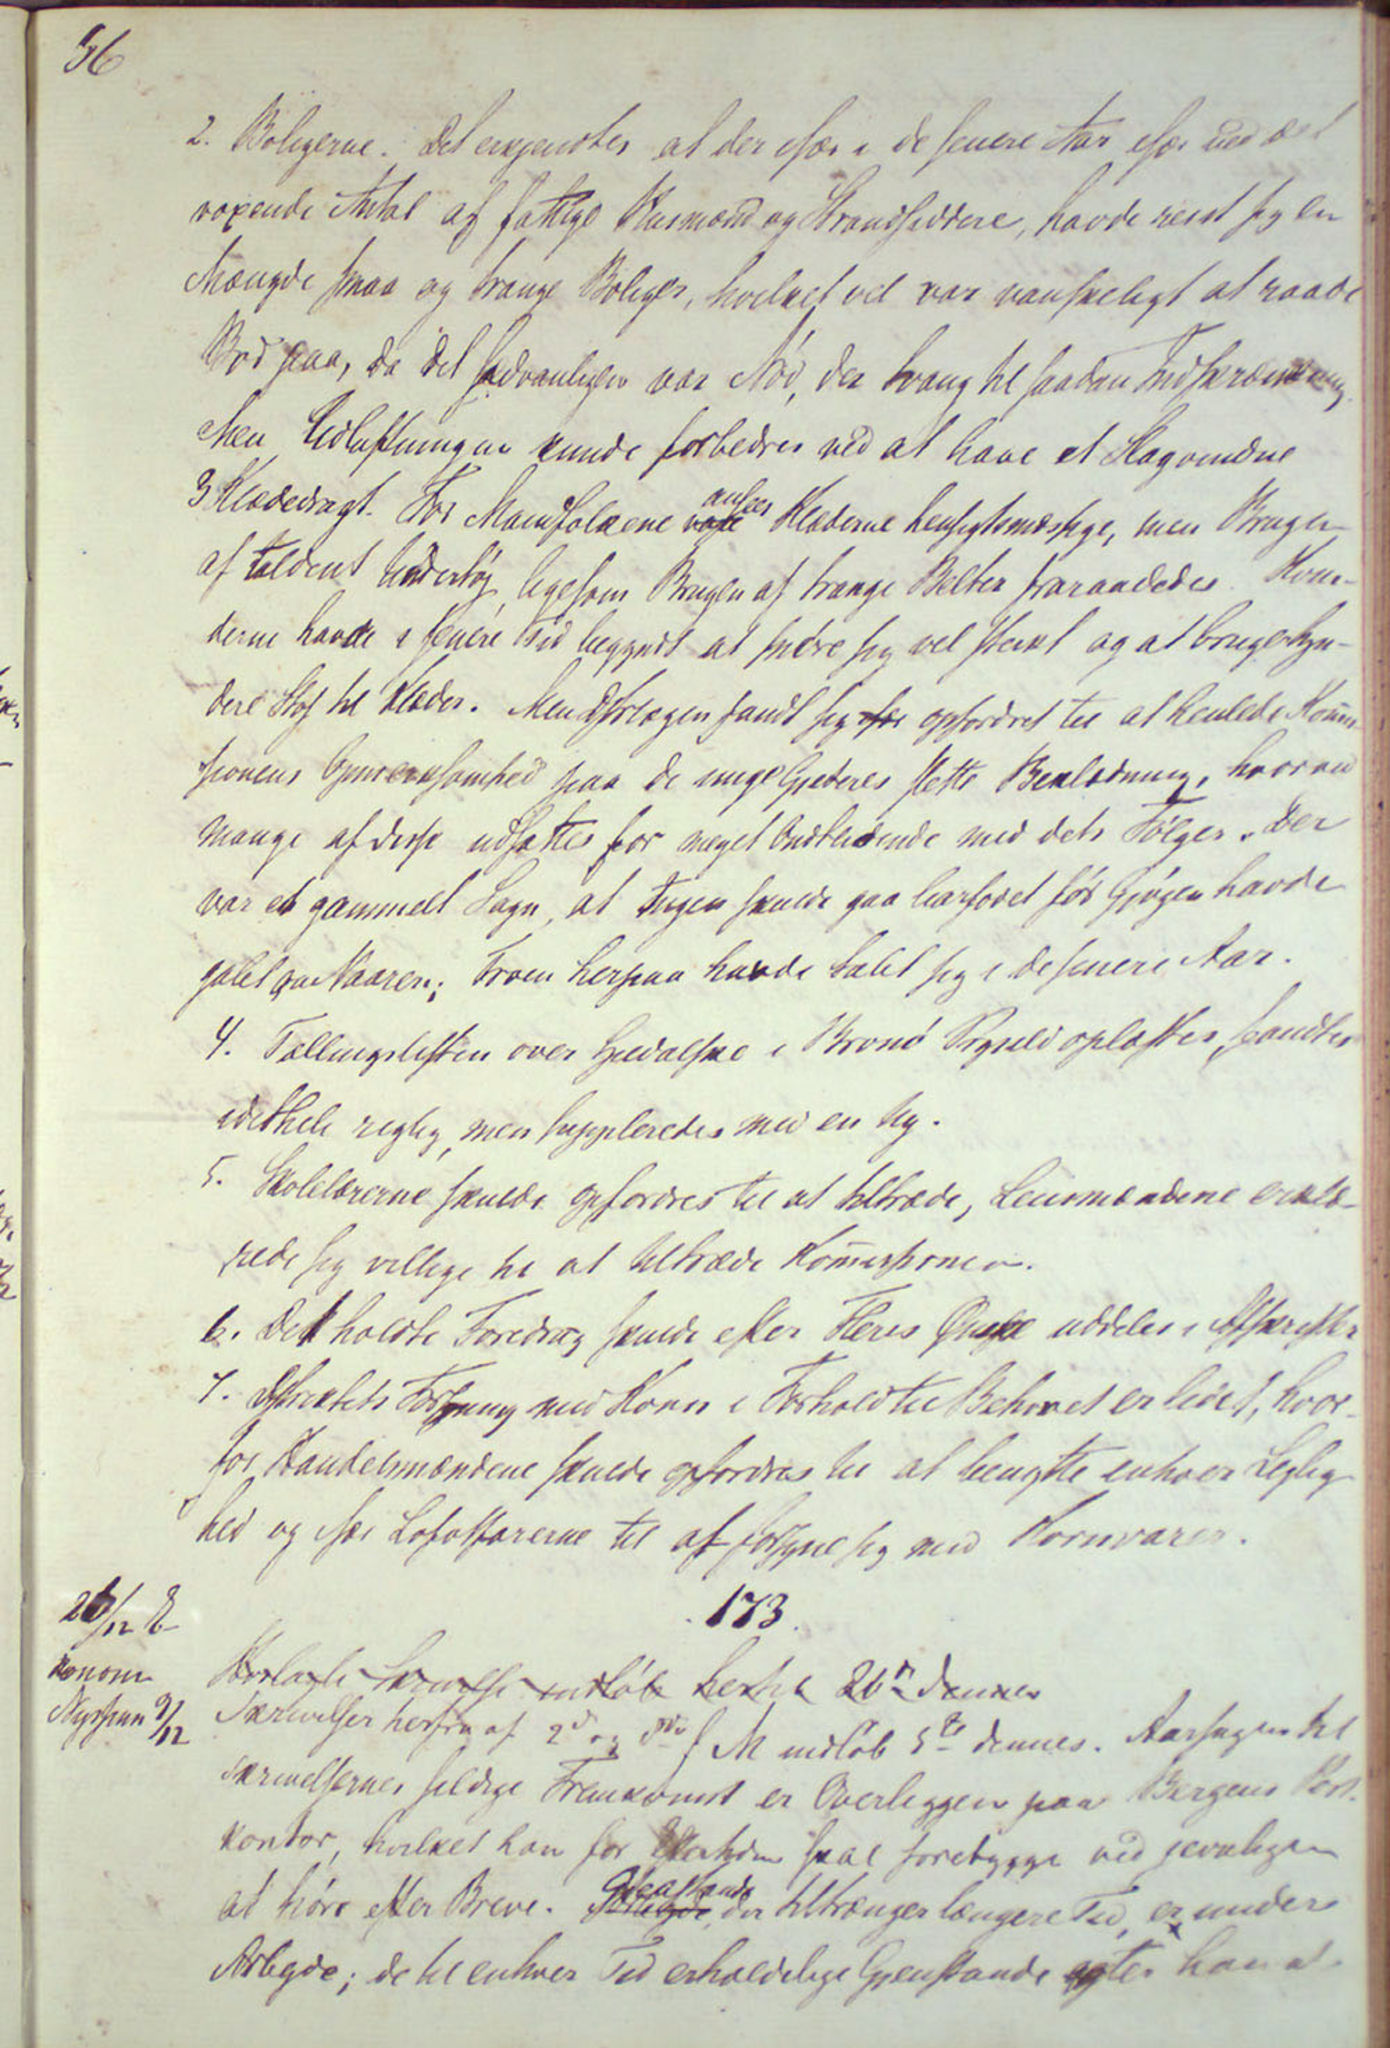 56
2. Boligerne. Det erkjendtes at der især i de senere Aar især ved et
voxende Antal af fattige Husmænd og Strandsiddere, havde reist sig en
Mængde smaa og trange Boliger, hvilket vel var vanskeligt at raade
Bod paa, da det sædvanligen var Nød, der tvang til saadan Indskrænkning.
Men Udluftningen kunde forbedres ved at have et Tagvindue
3 Klædedragt. For Mandfolkene vare ansees Klæderne hensigtsmæssige, men Brugen
af uldent Undertøj, ligesom Brugen af trange Belter fraraadedes. Kvin-
derne havde i senere Tid begyndt at snøre sig vel sterkt og at bruge tyn-
dere Stof til Klæder. Men Distriktslægen fandt sig især opfordret til at henlede Kommis-
sionens Opmerksomhed paa de unge Gjeteres slette Beklædning, hvorved
mange af disse udsattes for meget Ondtlidende med dets Følger. Der
var et gammelt Sagn, at Ingen skulde gaa barfodet før Gjøgen havde
galet om Vaaren; Troen herpaa havde tabt sig i de senere Aar.
4. Tællingslisten over Spedalske i Brønø Prgjeld oplæstes, fandtes
idethele rigtig, men suppleredes med en Ny.
5. Skolelærerne skulde opfordres til at tiltræde, Lensmændene erklæ-
rede sig villige til at tiltræde Kommissionen.
6. Det holdte Foredrag skulde efter Fleres Ønske uddeles i Afskrifter
7. Distriktets Forsyning med Korn i Forhold til Behovet er lidet, hvor-
for Handelsmændene skulde opfordres til at benytte enhver Leilig-
hed og især Lofotfarerne til at forsyne sig med Kornvarer.
173.
26/12 E-
konom
Nyssum 9/12
Skrivelse indløb hertil 26de dennes
Skrivelser herfra af 2d og 8de f M indløb 5te dennes. Aarsagen til
Skrivelsernes sildige Fremkomst er Overliggen paa Bergens Post-
kontor, hvilket han for Eftertiden skal forebygge ved jevnligen
at høre efter Breve. Gjenstande, der tiltrænger længere Tid, er under
Arbejde; de til enhver Tid erholdelige Gjenstande agter han at